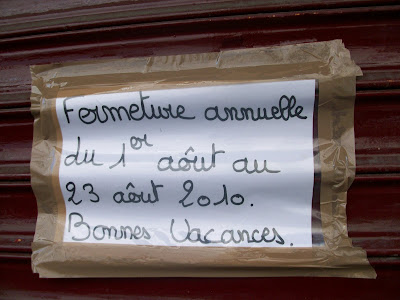 Fermeture annuelle
du 1er août au
23 août 2010.
Bonnes Vacances.